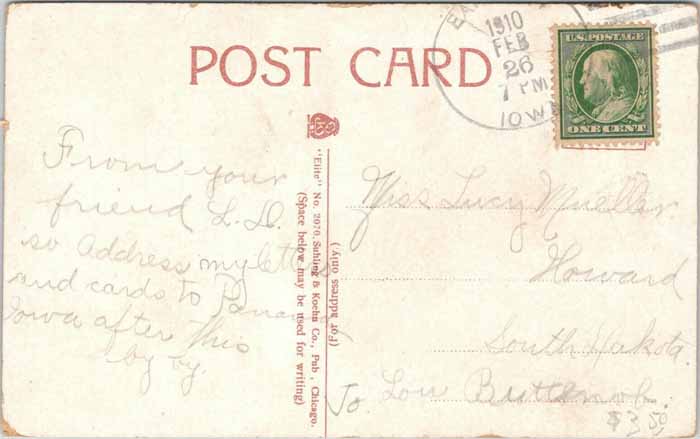 POST CARD
1910
FEB
26
7 PM
IOWA
U.S. POSTAGE
ONE CENT
From your
friend L. D.
so Address my letters
and cards to
Iowa after this
by by.
"Elite" No. 2070, Suhling & Koehn Co., Pub., Chicago.
(Space below may be used for writing)
(For address only.)
Miss Lucy Mueller
Howard
South Dakota.
To Low
$3.50